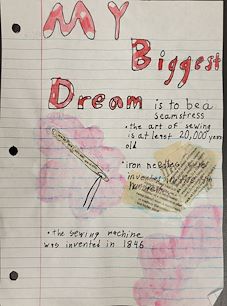 MY
Biggest
Dream is to be a
seamstress
• the art of sewing
is at least 20,000 years
old
• iron needles were
invented
• the sewing machine
was invented in 1846